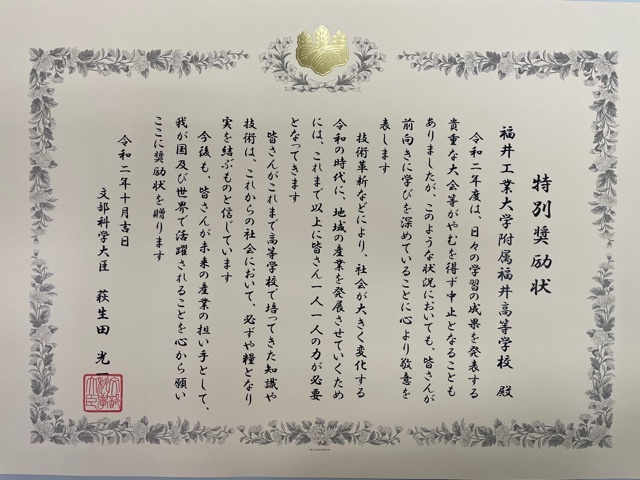 特別奨励状
福井工業大学附属福井高等学校 殿
令和二年度は、日々の学習の成果を発表する
貴重な大会等がやむを得ず中止となることも
ありましたが、このような状況においても、皆さんが
前向きに学びを深めていることに心より敬意を
表します
技術革新などにより、社会が大きく変化する
令和の時代に、地域の産業を発展させていくため
には、これまで以上に皆さん一人一人の力が必要
となってきます
皆さんがこれまで高等学校で培ってきた知識や
技術は、これからの社会において、必ずや糧となり
実を結ぶものと信じています
今後も、皆さんが未来の産業の担い手として、
我が国及び世界で活躍されることを心から願い
ここに奨励状を贈ります
令和二年十月吉日
文部科学大臣 萩生田 光一
文部科学大臣